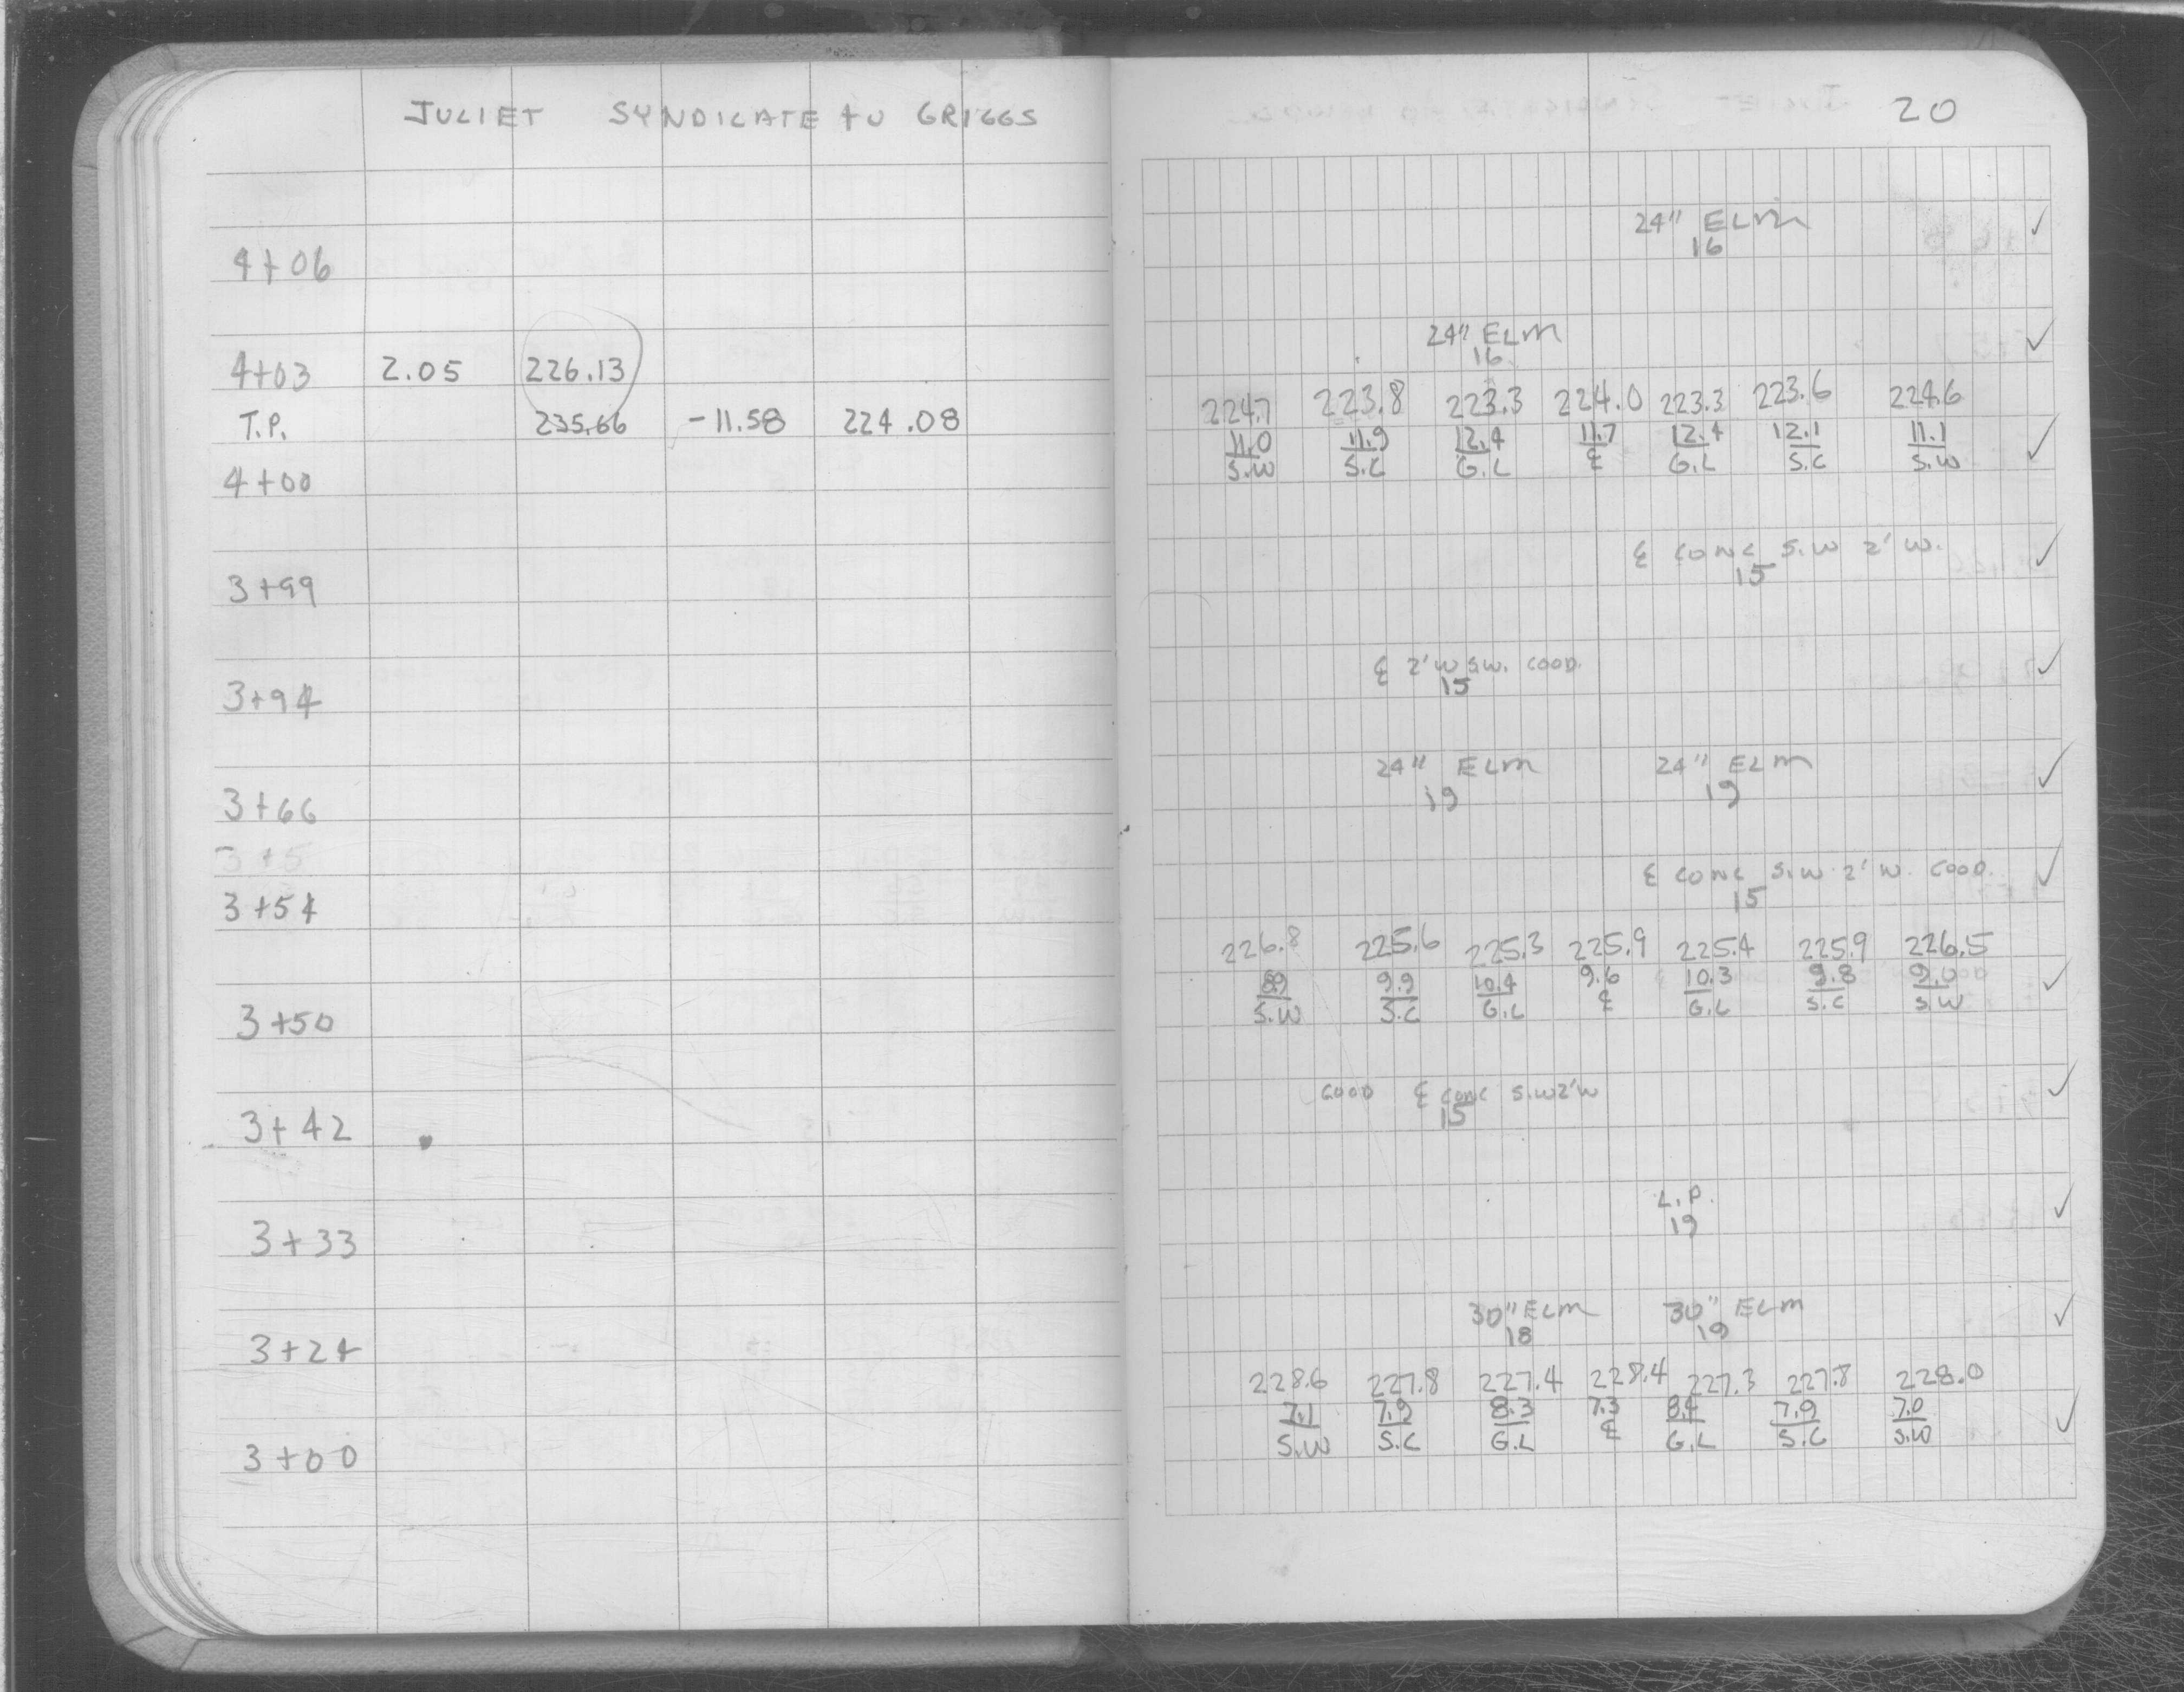 JULIET SYNDICATE to GRIGGS
20
24" ELM
4+06 16
24" ELM
16
4+03 2.05 226.13
224.7 223.8 223.3 224.0 223.3 223.6 224.6
T.P. 235.66 -11.58 224.08
11.0 11.9 12.4 11.7 12.4 12.1 11.1
S.W S.C G.L ℄ G.L S.C S.W
4+00
℄ CONC S.W 2' W.
15
3+99
℄ 2'W S.W. GOOD.
15
3+94
24" ELM 24" ELM
19 19
3+66
3+5
℄ CONC S.W. 2' W. GOOD.
15
3+54
226.8 225.6 225.3 225.9 225.4 225.9 226.5
8.9 9.9 10.4 9.6 10.3 9.8 9.0
S.W S.C G.L ℄ G.L S.C S.W
3+50
GOOD ℄ CONC S.W 2'W
15
3+42
L.P.
19
3+33
30" ELM 30" ELM
18 19
3+24
228.6 227.8 227.4 228.4 227.3 227.8 228.0
7.1 7.9 8.3 7.3 8.4 7.9 7.0
S.W S.C G.L ℄ G.L S.C S.W
3+00